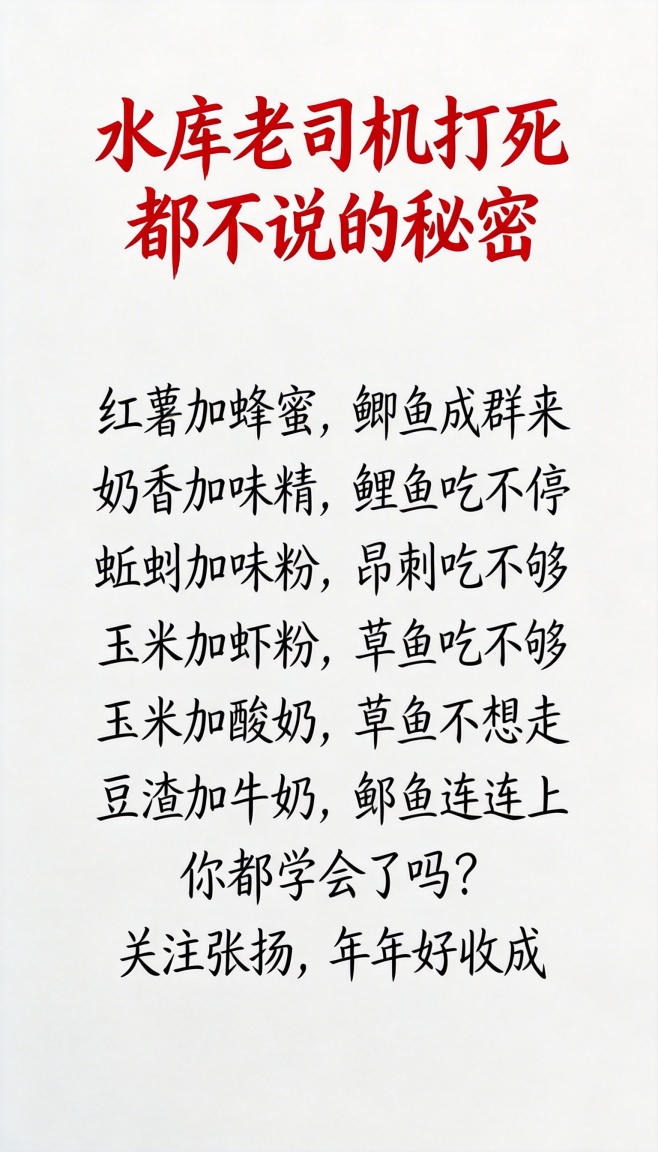 水库老司机打死
都不说的秘密
红薯加蜂蜜，鲫鱼成群来
奶香加味精，鲤鱼吃不停
蚯蚓加味粉，昂刺吃不够
玉米加虾粉，草鱼吃不够
玉米加酸奶，草鱼不想走
豆渣加牛奶，鱼连连上
你都学会了吗？
关注张扬，年年好收成